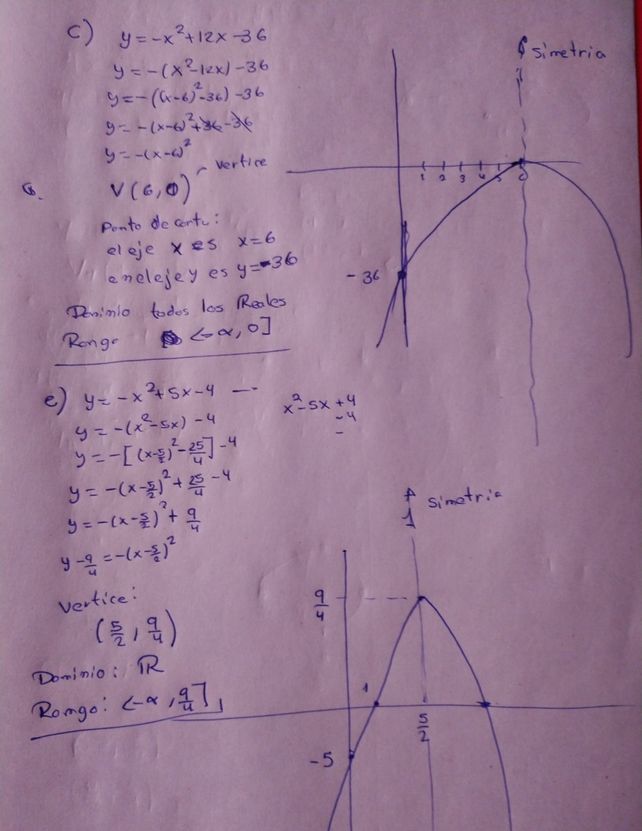 c) y = -x²+12x-36
y = -(x²-12x)-36
y = -((x-6)²-36)-36
y = -(x-6)²+36-36
y = -(x-6)²
V(6,0) vertice
Ponto de corte:
el eje x es x=6
en el eje y es y=-36
Dominio todos los Reales
Rango <-∝, 0]
simetria
1 2 3 4 5 6
-36
e) y = -x²+5x-4
y = -(x²-5x)-4
y = -[(x-5/2)²-25/4]-4
y = -(x-5/2)²+25/4-4
y = -(x-5/2)²+9/4
y-9/4 = -(x-5/2)²
vertice:
(5/2, 9/4)
Dominio: ℝ
Rango: <-∝, 9/4]
x²-5x+4
-4
-
simetria
9/4
1
5/2
-5